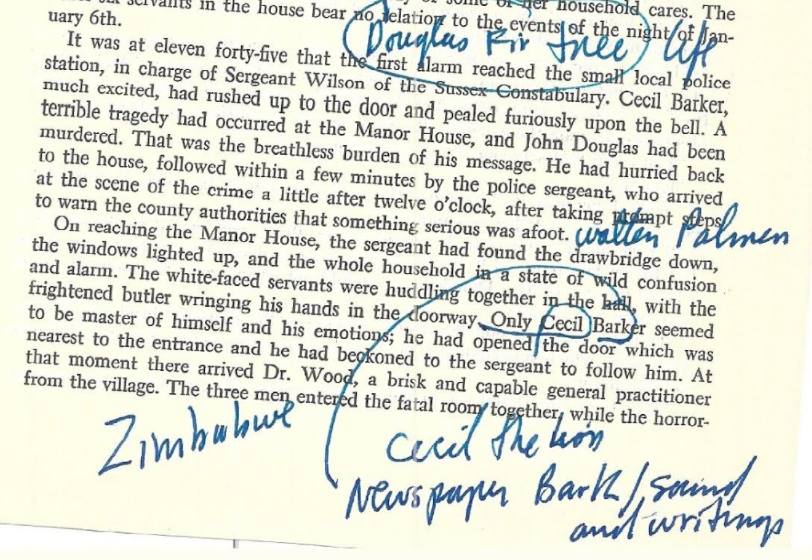 of some of her household cares. The
six servants in the house bear no relation to the events of the night of Jan-
uary 6th.
Douglas Fir tree life
It was at eleven forty-five that the first alarm reached the small local police
station, in charge of Sergeant Wilson of the Sussex Constabulary. Cecil Barker,
much excited, had rushed up to the door and pealed furiously upon the bell. A
terrible tragedy had occurred at the Manor House, and John Douglas had been
murdered. That was the breathless burden of his message. He had hurried back
to the house, followed within a few minutes by the police sergeant, who arrived
at the scene of the crime a little after twelve o'clock, after taking prompt steps
to warn the county authorities that something serious was afoot.
Walter Palmer
On reaching the Manor House, the sergeant had found the drawbridge down,
the windows lighted up, and the whole household in a state of wild confusion
and alarm. The white-faced servants were huddling together in the hall, with the
frightened butler wringing his hands in the doorway. Only Cecil Barker seemed
to be master of himself and his emotions; he had opened the door which was
nearest to the entrance and he had beckoned to the sergeant to follow him. At
that moment there arrived Dr. Wood, a brisk and capable general practitioner
from the village. The three men entered the fatal room together, while the horror-
Zimbabwe
Cecil the lion
Newspaper Bark / sound
and writings